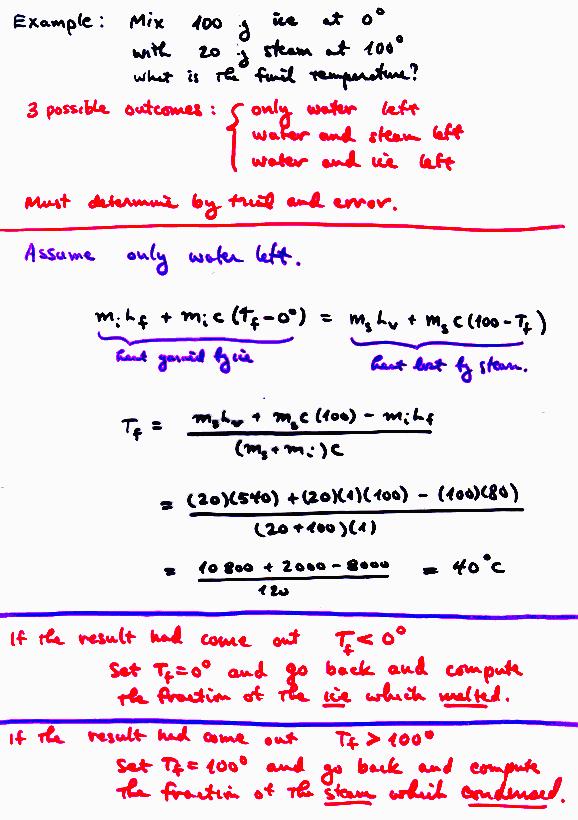 Example: Mix 100 g ice at 0°
with 20 g steam at 100°
what is the final temperature?
3 possible outcomes: { only water left
water and steam left
water and ice left
Must determine by trial and error.
Assume only water left.
m_i L_f + m_i c (T_f - 0°) = m_s L_v + m_s c (100 - T_f)
heat gained by ice heat lost by steam.
T_f = (m_s L_v + m_s c (100) - m_i L_f) / ((m_s + m_i) c)
= ((20)(540) + (20)(1)(100) - (100)(80)) / ((20+100)(1))
= (10800 + 2000 - 8000) / 120 = 40°C
If the result had come out T_f < 0°
Set T_f = 0° and go back and compute
the fraction of the ice which melted.
If the result had come out T_f > 100°
Set T_f = 100° and go back and compute
the fraction of the steam which condensed.